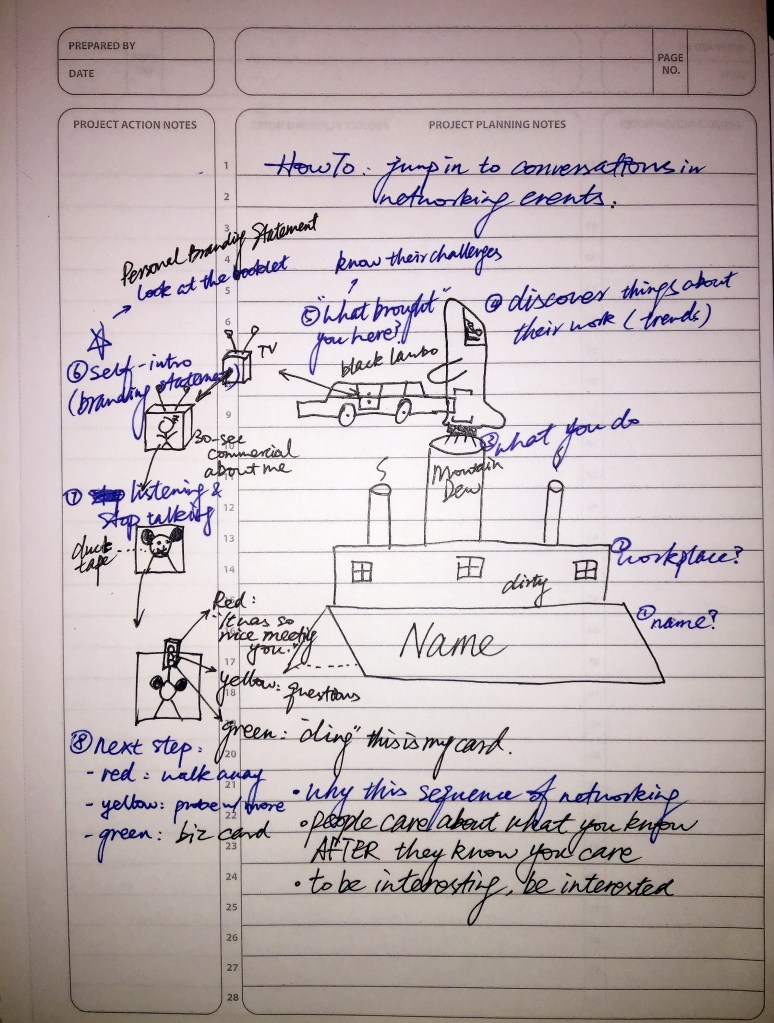 PREPARED BY
DATE
PAGE NO.
PROJECT ACTION NOTES
PROJECT PLANNING NOTES
1
2
3
4
5
6
7
9
11
12
13
14
15
16
17
18
20
21
22
23
24
25
26
27
28
How To: jump in to conversations in
networking events.
Personal Branding Statement
look at the booklet
know their challenges
⑤ "What brought"
you here?
④ discover things about
their work (trends)
TV
black lambo
⑥ self-intro
(branding statement)
30-sec
commercial
about me
③ what you do
Mountain
Dew
⑦ listening &
stop talking
duck
tape
② workplace?
dirty
① name?
Name
Red:
"It was so
nice meeting
you."
yellow: questions
green: "ding" this is my card.
⑧ next step:
- red: walk away
- yellow: probe w/ more
- green: biz card
• why this sequence of networking
• people care about what you know
AFTER they know you care
• to be interesting, be interested